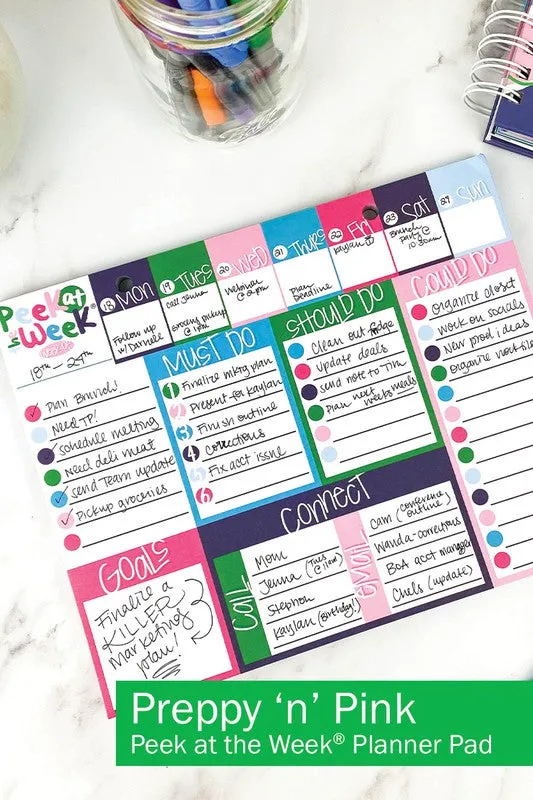 PEEK at
the WEEK®
18th - 24th
18 MON
Follow up
w/ Darnell
19 TUES
Call Jenna
Groceries pickup
@ 1pm
20 WED
Webinar
@ 2pm
21 THURS
Plan
Deadline
22 FRI
Kaylan
23 Sat
Brandy
party @
10:30am
Sun
Plan Brunch!
Need TP!
Schedule meeting
Need deli meat
Send Team update
Pickup groceries
MUST DO
1 Finalize mktg plan
2 Present for Kaylan
3 Finish outline
4 Corrections
5 Fix acct issue
6
SHOULD DO
Clean out fridge
Update deals
Send note to Tim
Plan next weeks meals
COULD DO
Organize closet
Work on socials
New prod ideas
Organize
GOALS
Finalize a
KILLER
marketing
plan!
CONNECT
CALL
Mom
Jenna (Tues @ 11am)
Stephon
Kaylan (Birthday!)
EMAIL
Cam (conference
outline)
Wanda-corrections
BoA acct manager
Chels (update)
Preppy ‘n’ Pink
Peek at the Week® Planner Pad